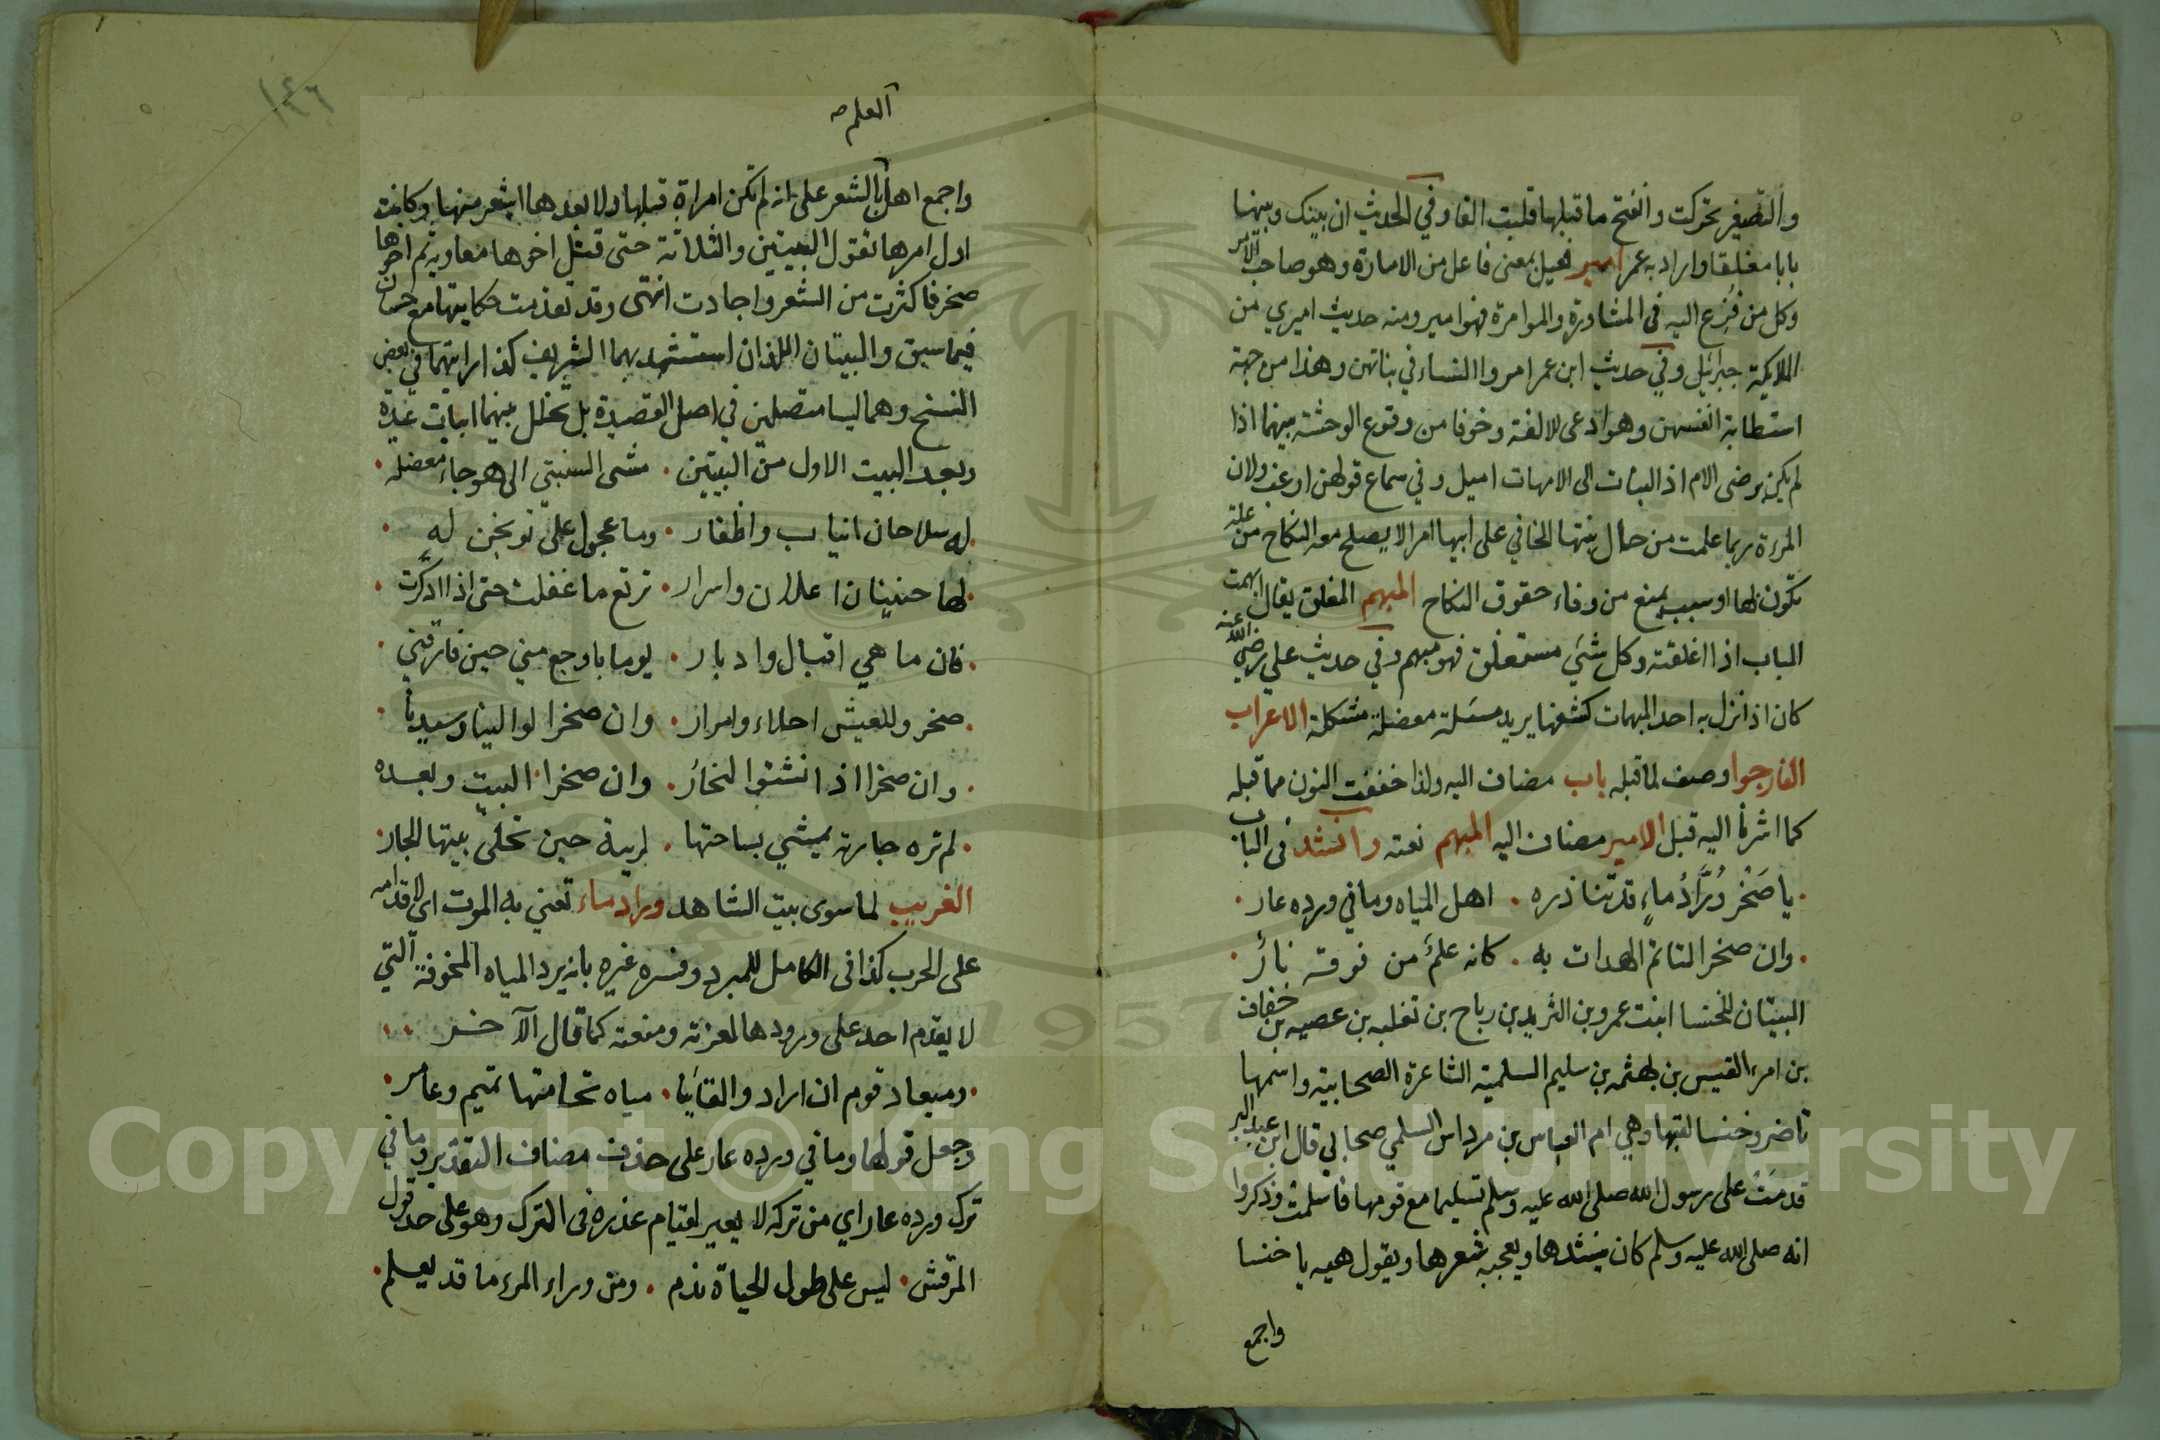 والتصغير تحركت وانفتح ما قبلها قلبت الفا وفي الحديث ان بينك وبينها
بابا مغلقا واراد به عمر امير فعيل بمعنى فاعل من الامارة وهو صاحب الامر
وكل من فزع اليه في المشاورة والموامرة فهو امير ومنه حديث اميري من
الملايكة جبرائيل وفي حديث ابن عمر امروا النساء في بناتهن وهذا من جهة
استطابة انفسهن وهو ادعى للالفة وخوفا من وقوع الوحشة بينهما اذا
لم يكن برضى الام اذ البنات الى الامهات اميل وفي سماع قولهن ارغب ولان
المرءة ربما علمت من حال بنتها الخافي على ابيها امرا لا يصلح معه النكاح من علة
تكون لها او سبب يمنع من وفاء حقوق النكاح المبهم المغلق يقال ابهمت
الباب اذا اغلقته وكل شي مستغلق فهو مبهم وفي حديث علي رضي الله عنه
كان اذا نزل به احد المبهمات كشفها يريد مسئلة معضلة مشكلة الاعراب
الفارجوا وصف لما قبله باب مضاف اليه ولذا خففت النون مما قبله
كما اشرنا اليه قبل الامير مضاف اليه المبهم نعته وانشد في الباب
يا صَخْرُ وُرَّادُ ماءٍ قد تناذره . اهل المياه وما في ورده عار
وان صخرا لتاتم الهدات به . كانه علم من فوقه نار
البيتان للخنسا ابنت عمرو بن الثريد بن رباح بن تغلبه بن عصيه بن خفاف
بن امرء القيس بن بهثمه بن سليم السلمية الشاعرة الصحابية واسمها
تاضر وخنسا لقبها وهي ام العباس بن مرداس السلمي صحابي قال ابن عبد البر
قدمت على رسول الله صلى الله عليه وسلم تسليما مع قومها فاسلمت وذكروا
انه صلى الله عليه وسلم كان ينشدها ويعجبه شعرها ويقول هيه يا خنسا
واجمع
١٤٦
العلم صـ
واجمع اهل بالشعر على انه لم تكن امراة قبلها ولا بعدها اشعر منها وكانت
اول امرها تقول البيتين والثلاثة حتى قتل اخوها معاوية ثم اخوها
صخر فاكثرت من الشعر واجادت انتهى وقد تقدمت حكايتها مع حسان
فيما سبق والبيتان اللذان استشهد بهما الشريف كذا رايتهما في بعض
النسخ وهما ليسا متصلين في اصل القصيدة بل تخلل بينهما ابيات عدة
وبعد البيت الاول من البيتين . مشى السبنتى الى هوجاء معضله
له سلاحان انياب واظفار . وما عجول على بو تحن له
لها حنينان اعلان واسرار . ترتع ما غفلت حتى اذا ادكرت
فان ما هي اقبال وادبار . يوما باوجع مني حين فارقني
صخر وللعيش احلاء وامرار . وان صخرا لوالينا وسيدنا
وان صخرا اذا نشتوا لنحار . وان صخرا البيت وبعده
لم تره جارة يمشي بساحتها . لريبة حين تخلى بيتها الجار
الغريب لما سوى بيت الشاهد وراد ماء تعني به الموت اي لاقدامه
على الحرب كذا في الكامل للمبرد وفسره غيره بانه يرد المياه المخوفة التي
لا يقدم احد على ورودها لعزته ومنعته كما قال الآخر
وميعاد قوم ان ارادوا لقاينا . مياه تحامتها تميم وعامر
وجعل قولها وما في ورده عار على حذف مضاف التقدير وما في
ترك ورده عار اي من تركه لا يعير لقيام عذره في الترك وهو على حد قول
المرقش . ليس على طول الحياة ندم . ومن وراء المرء ما قد يعلم
Copyright © King Saud University
1957